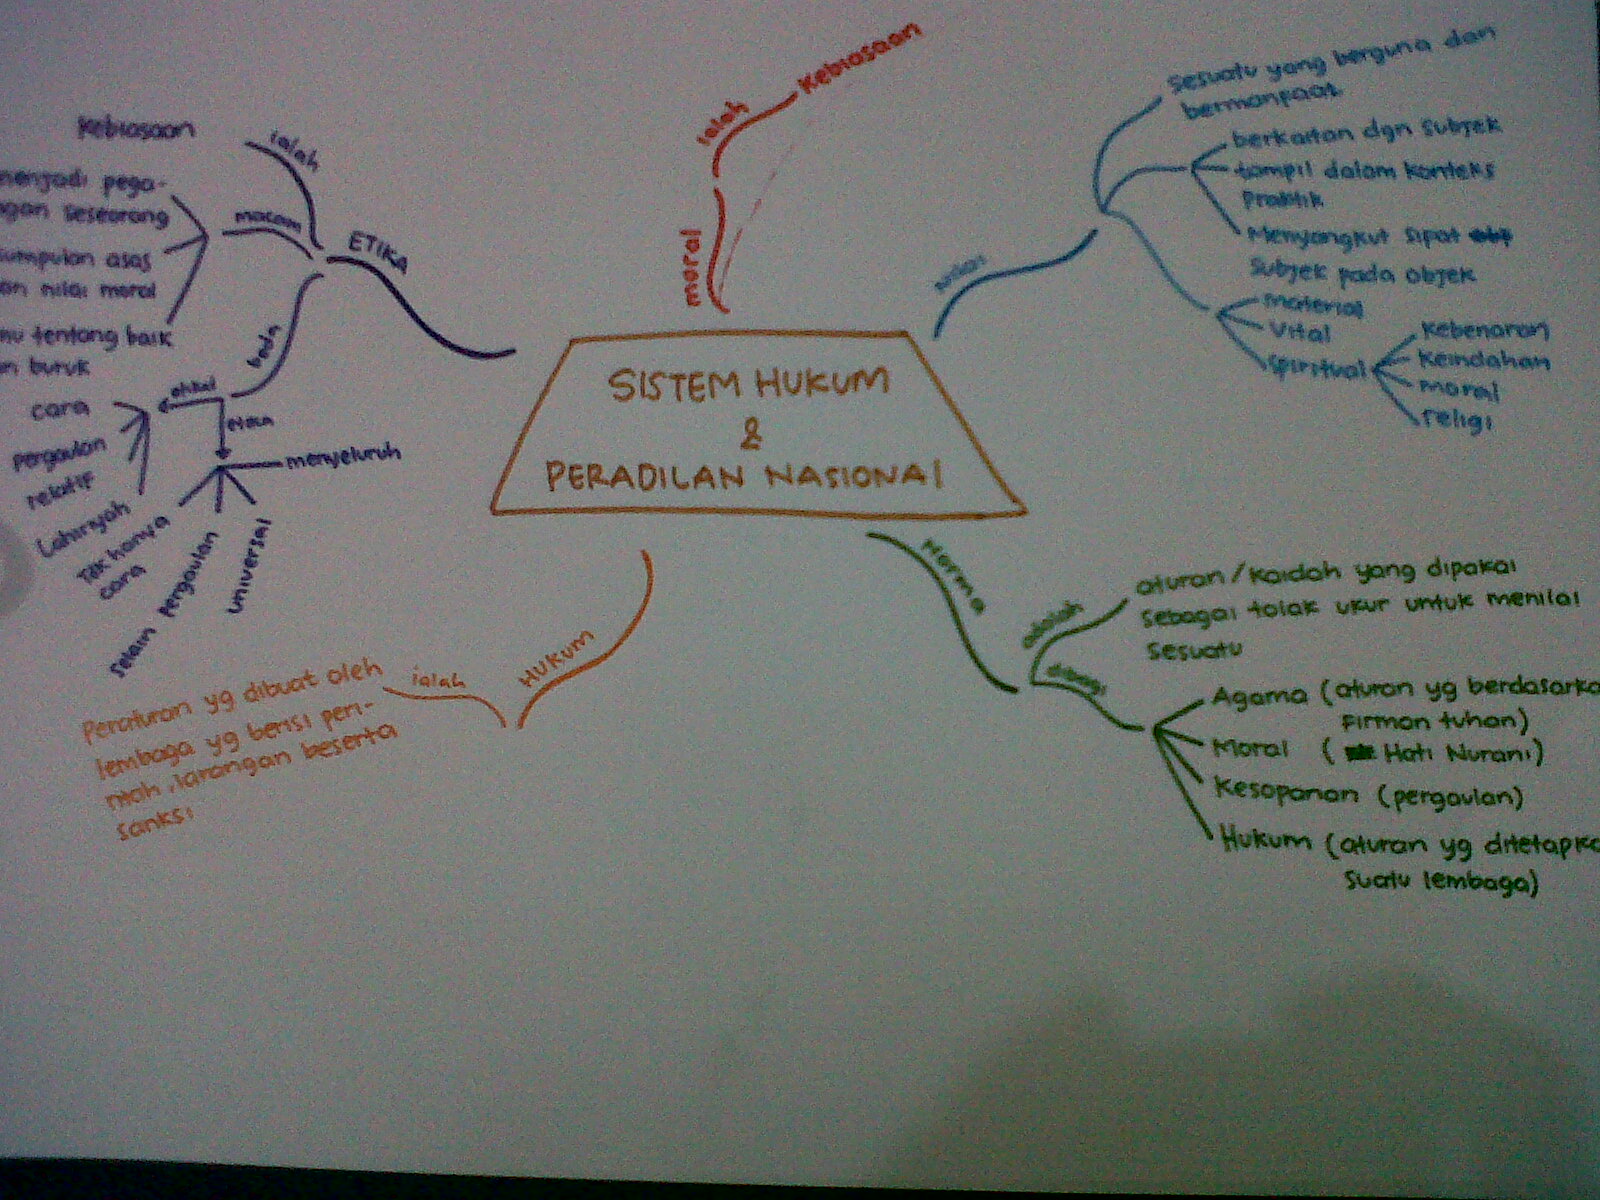 SISTEM HUKUM
&
PERADILAN NASIONAL
moral
ialah
Kebiasaan
Sesuatu yang berguna dan
bermanfaat
berkaitan dgn Subjek
tampil dalam konteks
Praktik
Menyangkut Sipat
Subjek pada objek
material
Vital
Spiritual
Kebenaran
Keindahan
moral
religi
Norma
adalah
aturan/kaidah yang dipakai
Sebagai tolak ukur untuk menilai
Sesuatu
dibagi
Agama (aturan yg berdasarka
Firman tuhan)
Moral ( Hati Nurani)
Kesopanan (pergaulan)
Hukum (aturan yg ditetapka
Suatu lembaga)
HUKUM
ialah
Peraturan yg dibuat oleh
lembaga yg berisi peri-
ntah, larangan beserta
sanksi
ETIKA
ialah
Kebiasaan
macam
menjadi pega-
ngan seseorang
umpulan asas
an nilai moral
mu tentang baik
n buruk
beda
etiket
cara
pergaulan
relatif
Lahiriyah
etika
menyeluruh
Tak hanya
cara
Selain pergaulan
universal